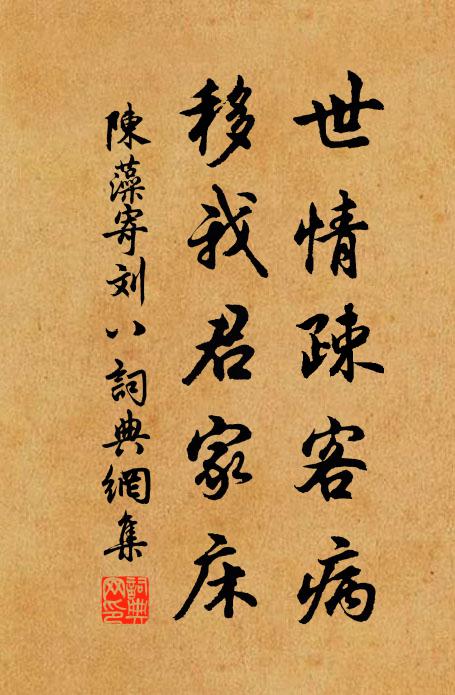 世情疎客病
移我君家床
陳藻寄刘八詞典網集
詞典
网印